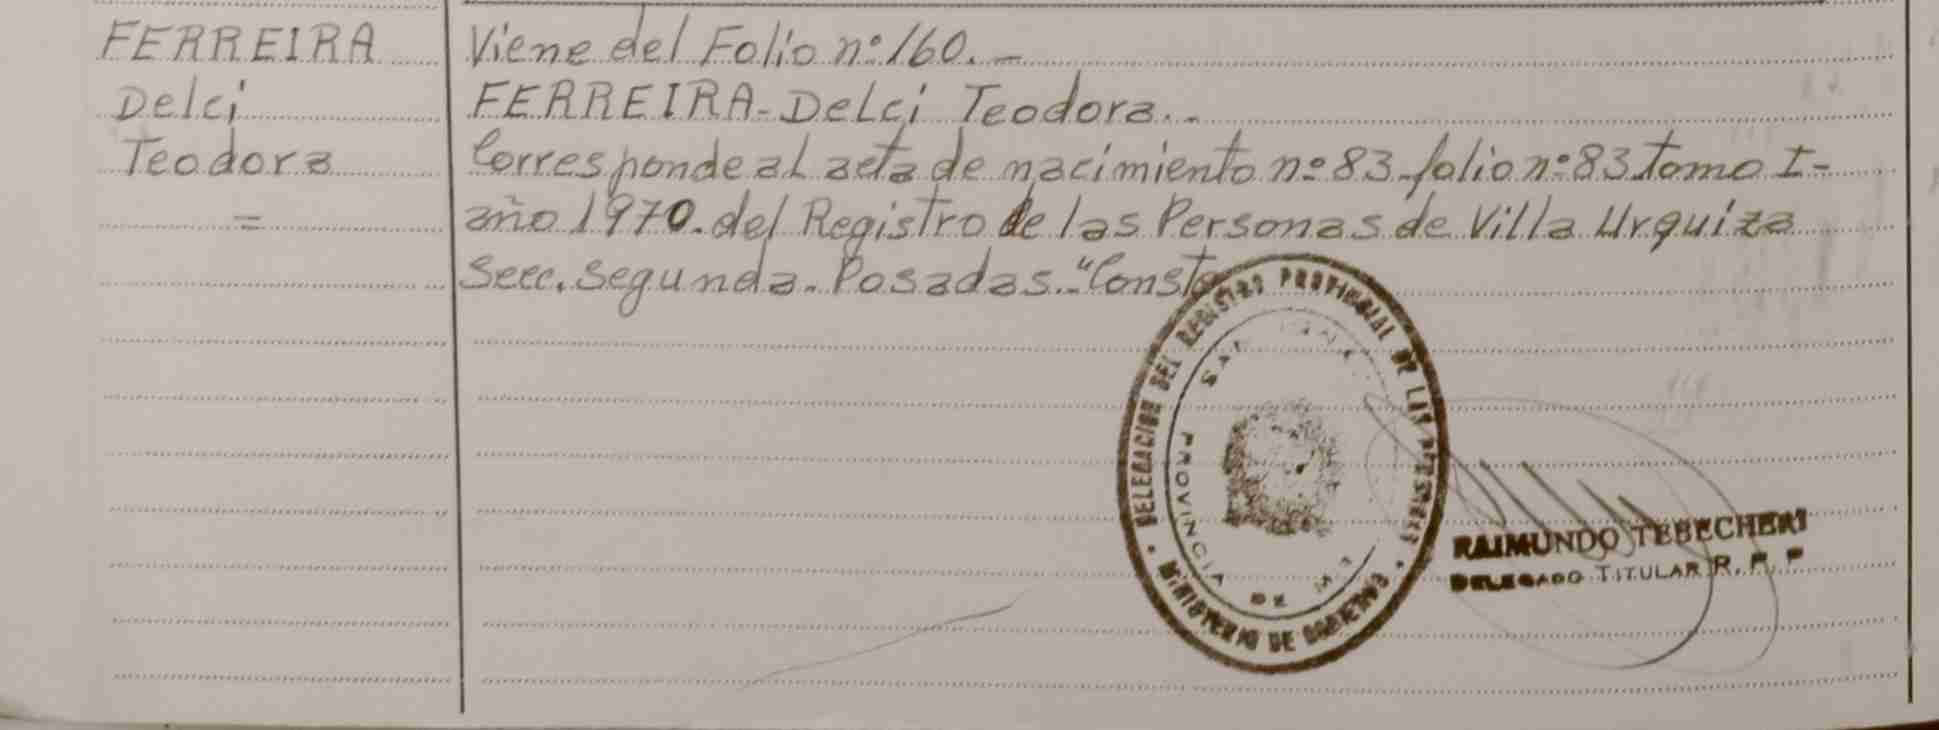 FERREIRA
Delci
Teodora
=
Viene del Folio nº 160. —
FERREIRA - Delci Teodora..
Corresponde al acta de nacimiento nº 83 folio nº 83 tomo I -
año 1970. del Registro de las Personas de Villa Urquiza
Secc. Segunda. Posadas. "Consta
DELEGACION DEL REGISTRO PROVINCIAL DE LAS PERSONAS
MINISTERIO DE GOBIERNO
PROVINCIA DE
RAIMUNDO TEBECHERI
DELEGADO TITULAR R. P. P